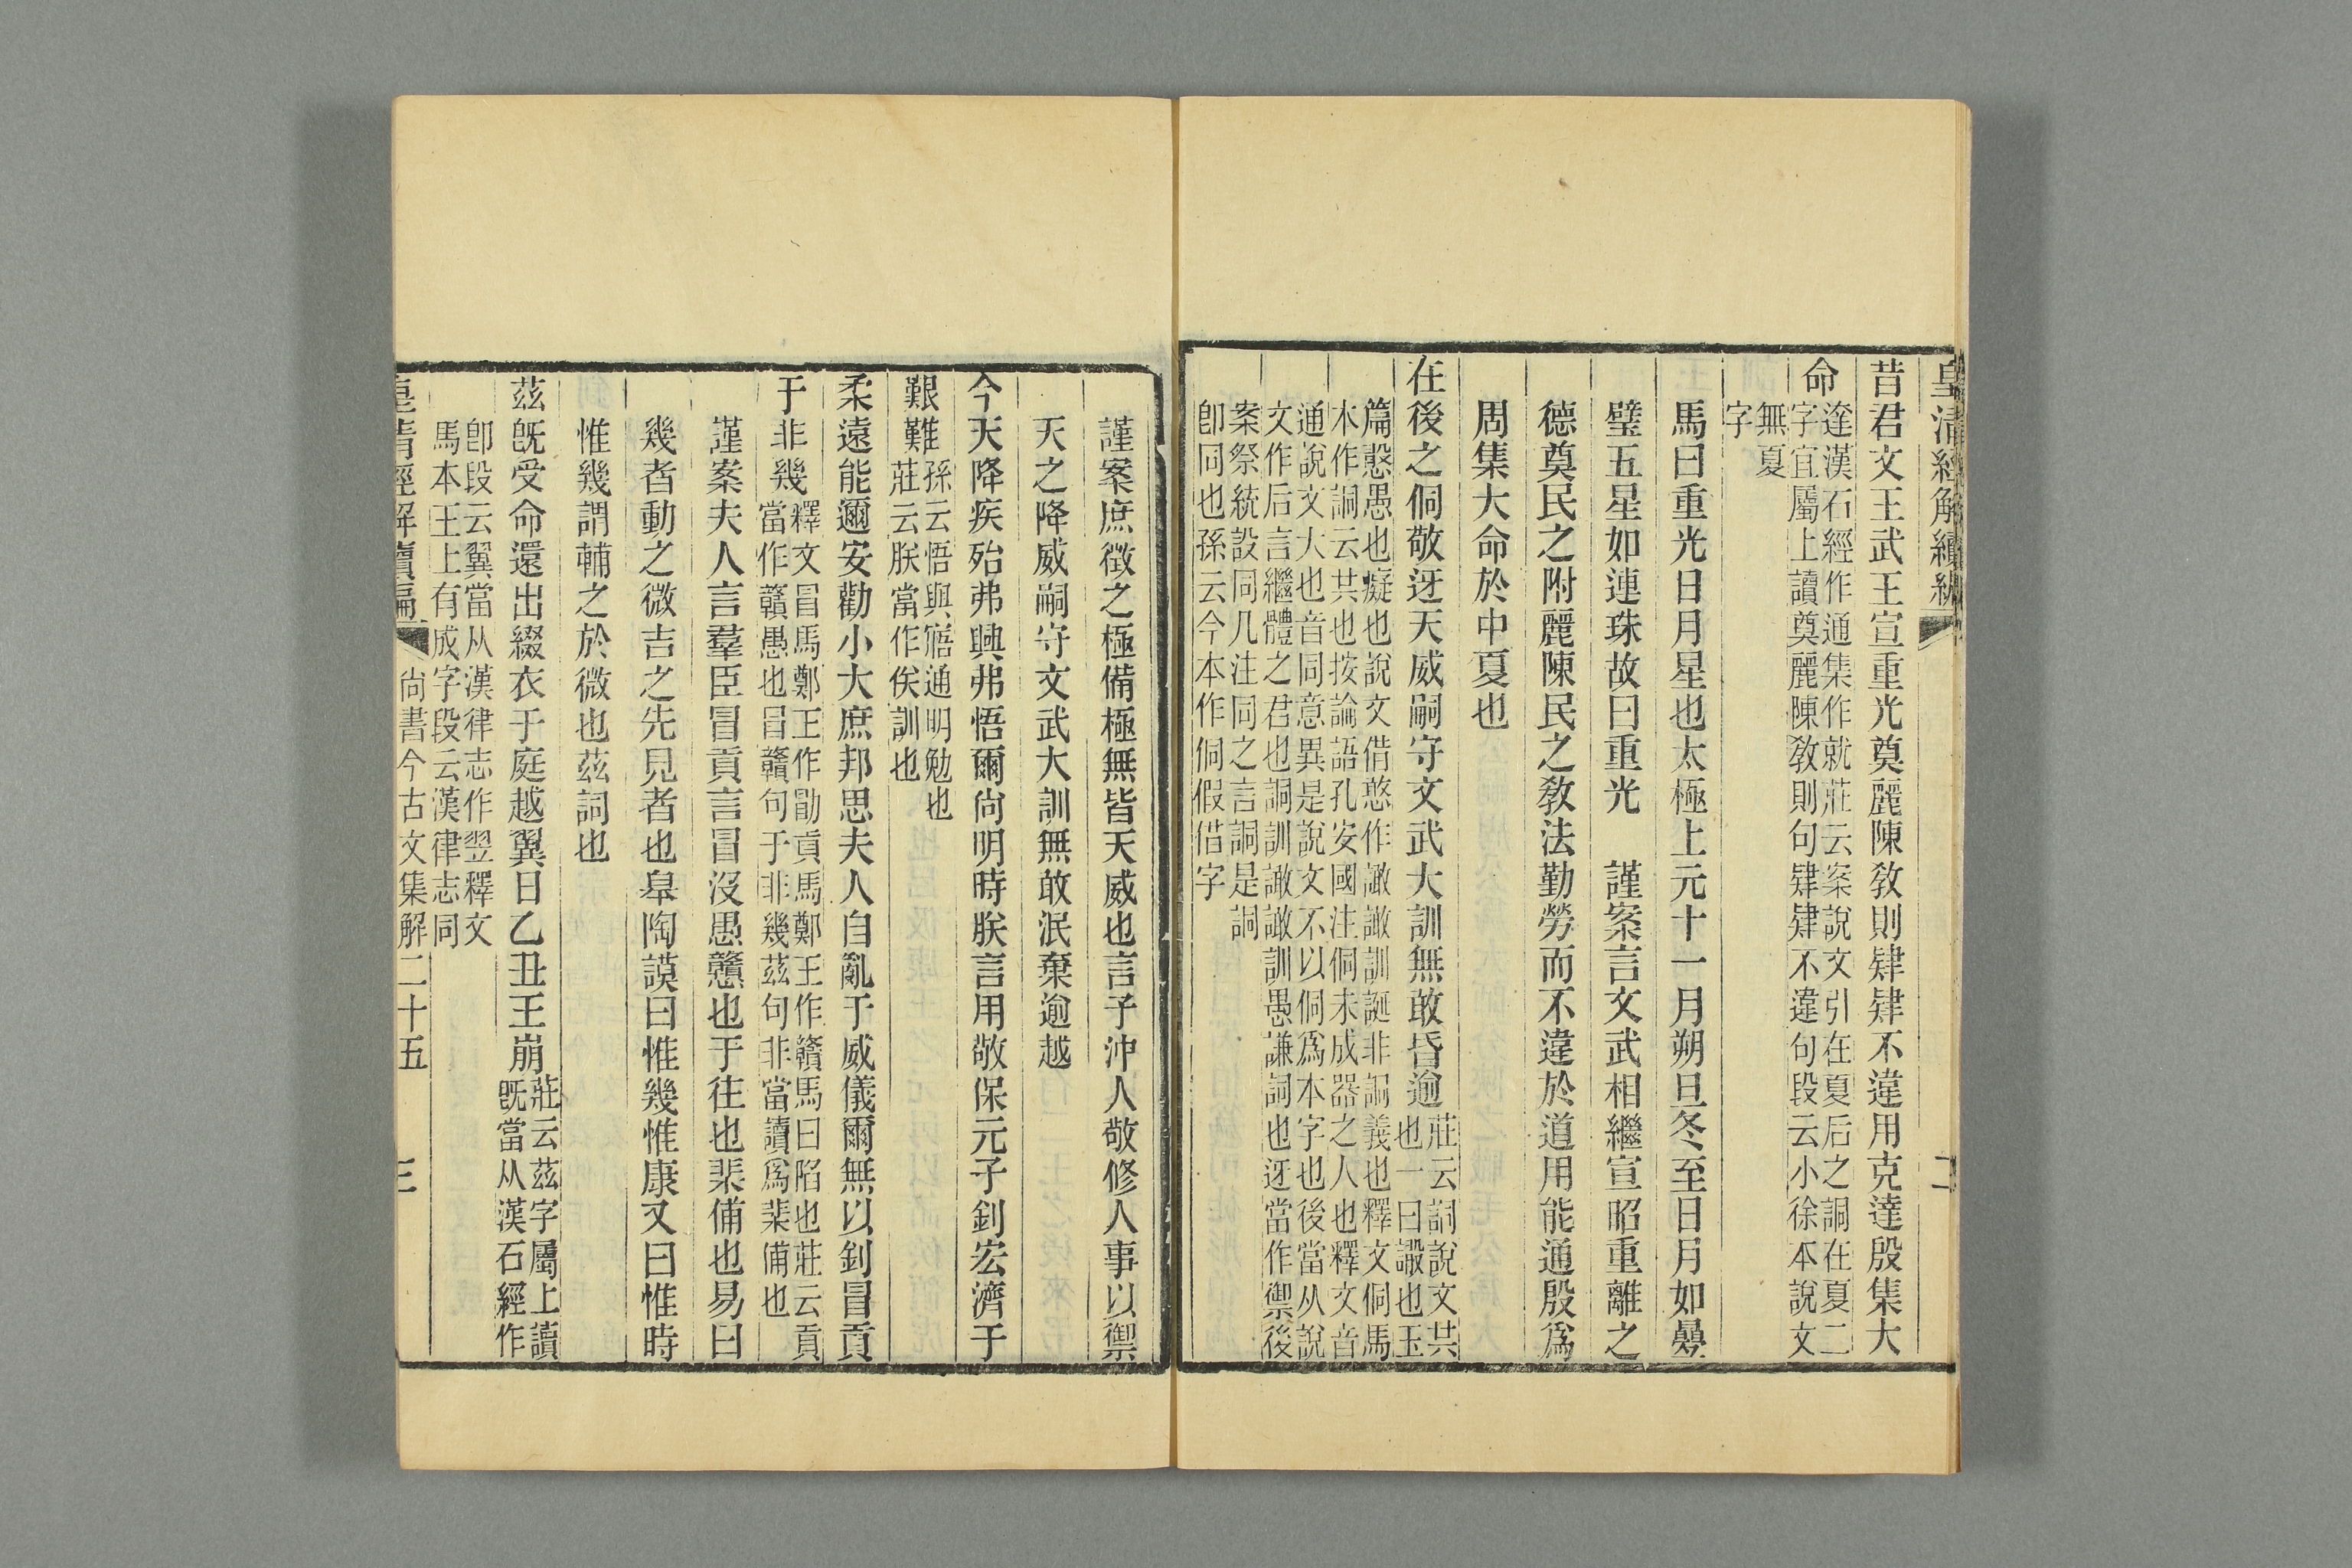 皇清經解續編 二
昔君文王武王宣重光奠麗陳敎則肄肄不違用克達殷集大
命
達漢石經作通集作就莊云案說文引在夏后之詷在夏二
字宜屬上讀奠麗陳敎則句肄肄不違句段云小徐本說文
無夏
字
馬曰重光日月星也太極上元十一月朔旦冬至日月如曡
璧五星如連珠故曰重光 謹案言文武相繼宣昭重離之
德奠民之附麗陳民之敎法勤勞而不違於道用能通殷爲
周集大命於中夏也
在後之侗敬迓天威嗣守文武大訓無敢昏逾
莊云詷說文共
也一曰譀也玉
篇憃愚也癡也說文借憨作譀譀訓誕非詷義也釋文侗馬
本作詷云共也按論語孔安國注侗未成器之人也釋文音
通說文大也音同意異是說文不以侗爲本字也後當从說
文作后言繼體之君也詷訓譀譀訓愚謙詞也迓當作禦後
案祭統設同几注同之言詷是詷
卽同也孫云今本作侗假借字
謹案庶徵之極備極無皆天威也言予沖人敬修人事以禦
天之降威嗣守文武大訓無敢泯棄逾越
今天降疾殆弗興弗悟爾尙明時朕言用敬保元子釗宏濟于
艱難
孫云悟與寤通明勉也
莊云朕當作矦訓也
柔遠能邇安勸小大庶邦思夫人自亂于威儀爾無以釗冒貢
于非幾
釋文冒馬鄭王作勖貢馬鄭王作贛馬曰陷也莊云貢
當作贛愚也冒贛句于非幾茲句非當讀爲棐俌也
謹案夫人言羣臣冒貢言冒沒愚戇也于往也棐俌也易曰
幾者動之微吉之先見者也皋陶謨曰惟幾惟康又曰惟時
惟幾謂輔之於微也茲詞也
茲旣受命還出綴衣于庭越翼日乙丑王崩
莊云茲字屬上讀
旣當从漢石經作
卽段云翼當从漢律志作翌釋文
馬本王上有成字段云漢律志同
皇清經解續編 尙書今古文集解二十五 三